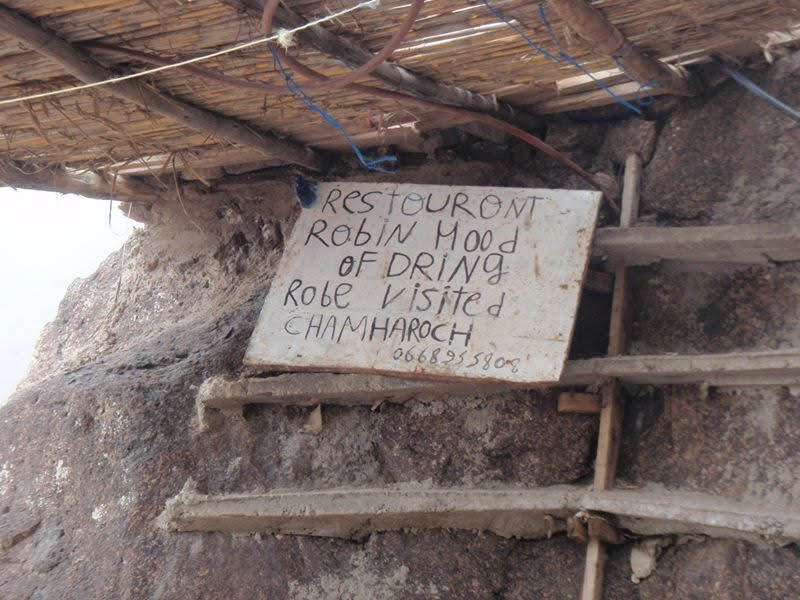 RESTOURONT
ROBIN HOOd
OF DRING
Robe Visited
CHAMHAROCH
0668955808